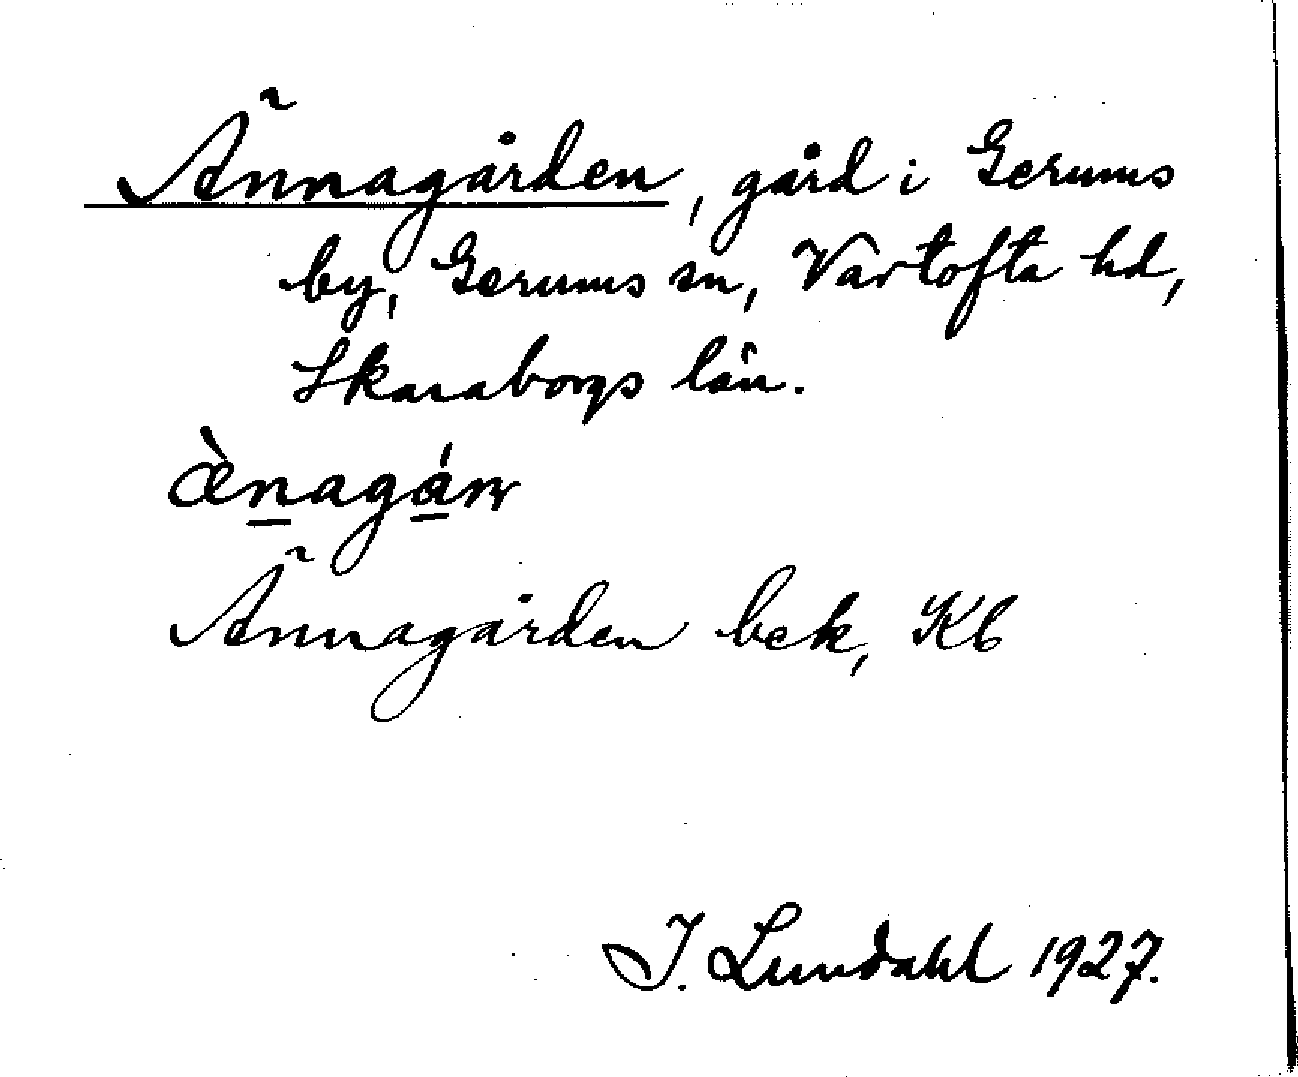 Ännagården, gård i Gerums
by, Gerums sn, Vartofta hd,
Skaraborgs län.
æ̀nagánr
Ännagården bek, Kb
I. Lundahl 1927.